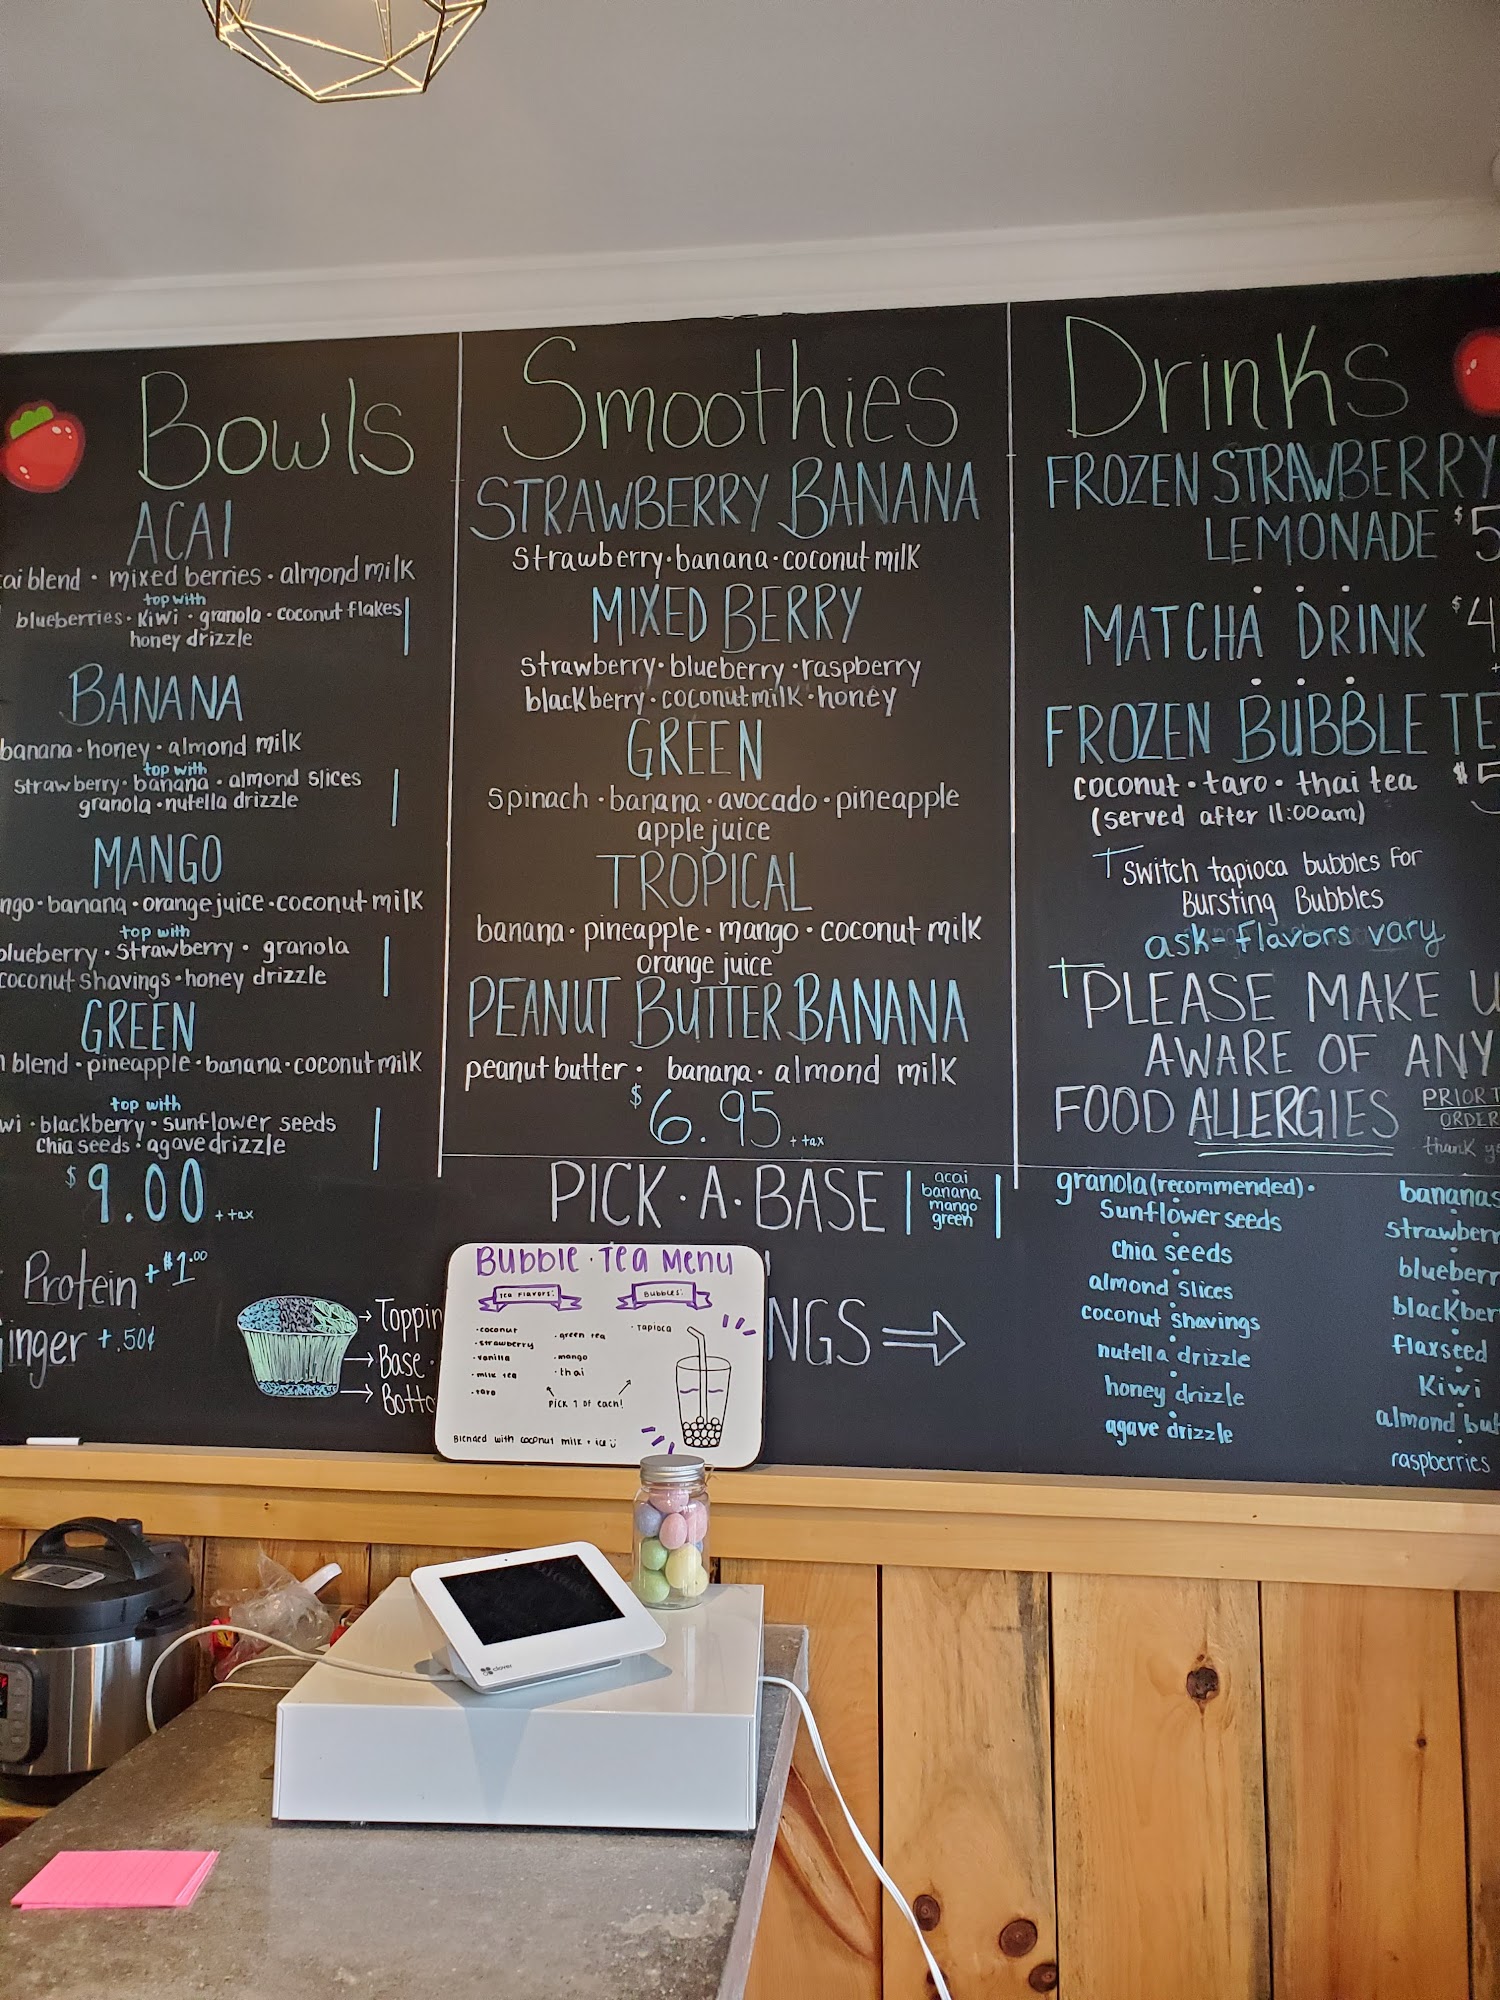 Bowls
ACAI
blend · mixed berries · almond milk
top with
blueberries · kiwi · granola · coconut flakes
honey drizzle
BANANA
banana · honey · almond milk
top with
strawberry · banana · almond slices
granola · nutella drizzle
MANGO
banana · orange juice · coconut milk
top with
blueberry · strawberry · granola
coconut shavings · honey drizzle
GREEN
blend · pineapple · banana · coconut milk
top with
blackberry · sunflower seeds
chia seeds · agave drizzle
$9.00 + tax
Protein +$1.00
+.50¢
Base
Smoothies
STRAWBERRY BANANA
strawberry · banana · coconut milk
MIXED BERRY
strawberry · blueberry · raspberry
blackberry · coconut milk · honey
GREEN
spinach · banana · avocado · pineapple
apple juice
TROPICAL
banana · pineapple · mango · coconut milk
orange juice
PEANUT BUTTER BANANA
peanut butter · banana · almond milk
$6.95 + tax
Drinks
FROZEN STRAWBERRY
LEMONADE $5
MATCHA DRINK $4
FROZEN BUBBLE
coconut · taro · thai tea $5
(served after 11:00am)
Switch tapioca bubbles for
Bursting Bubbles
ask-flavors vary
PLEASE MAKE
AWARE OF ANY
FOOD ALLERGIES PRIOR
thank
PICK · A · BASE
acai
banana
mango
green
granola (recommended) ·
sunflower seeds
chia seeds
almond slices
coconut shavings
nutella drizzle
honey drizzle
agave drizzle
bananas
flaxseed
kiwi
almond
raspberries
Bubble · Tea Menu
Tea Flavors:
· coconut
· strawberry
· vanilla
· milk tea
· taro
· green tea
· mango
· thai
Bubbles:
· Tapioca
Pick 1 of each!
Blended with coconut milk + ice
clover